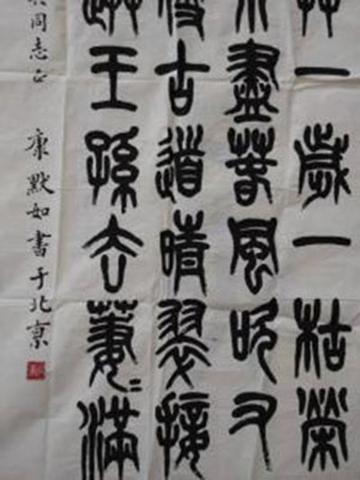 一歲一枯榮
不盡春風吹又
侵古道晴翠接
王孫去萋〻滿
同志正 康默如書于北京